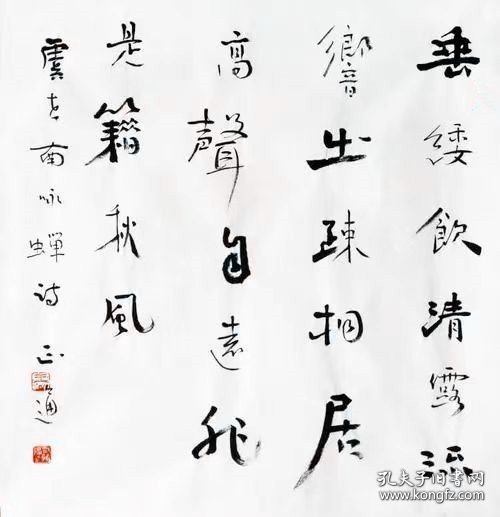 垂緌飲清露流
響出疎桐居
高聲自遠非
是籍秋風
虞世南咏蝉诗 正通
孔夫子旧书网
www.kongfz.com